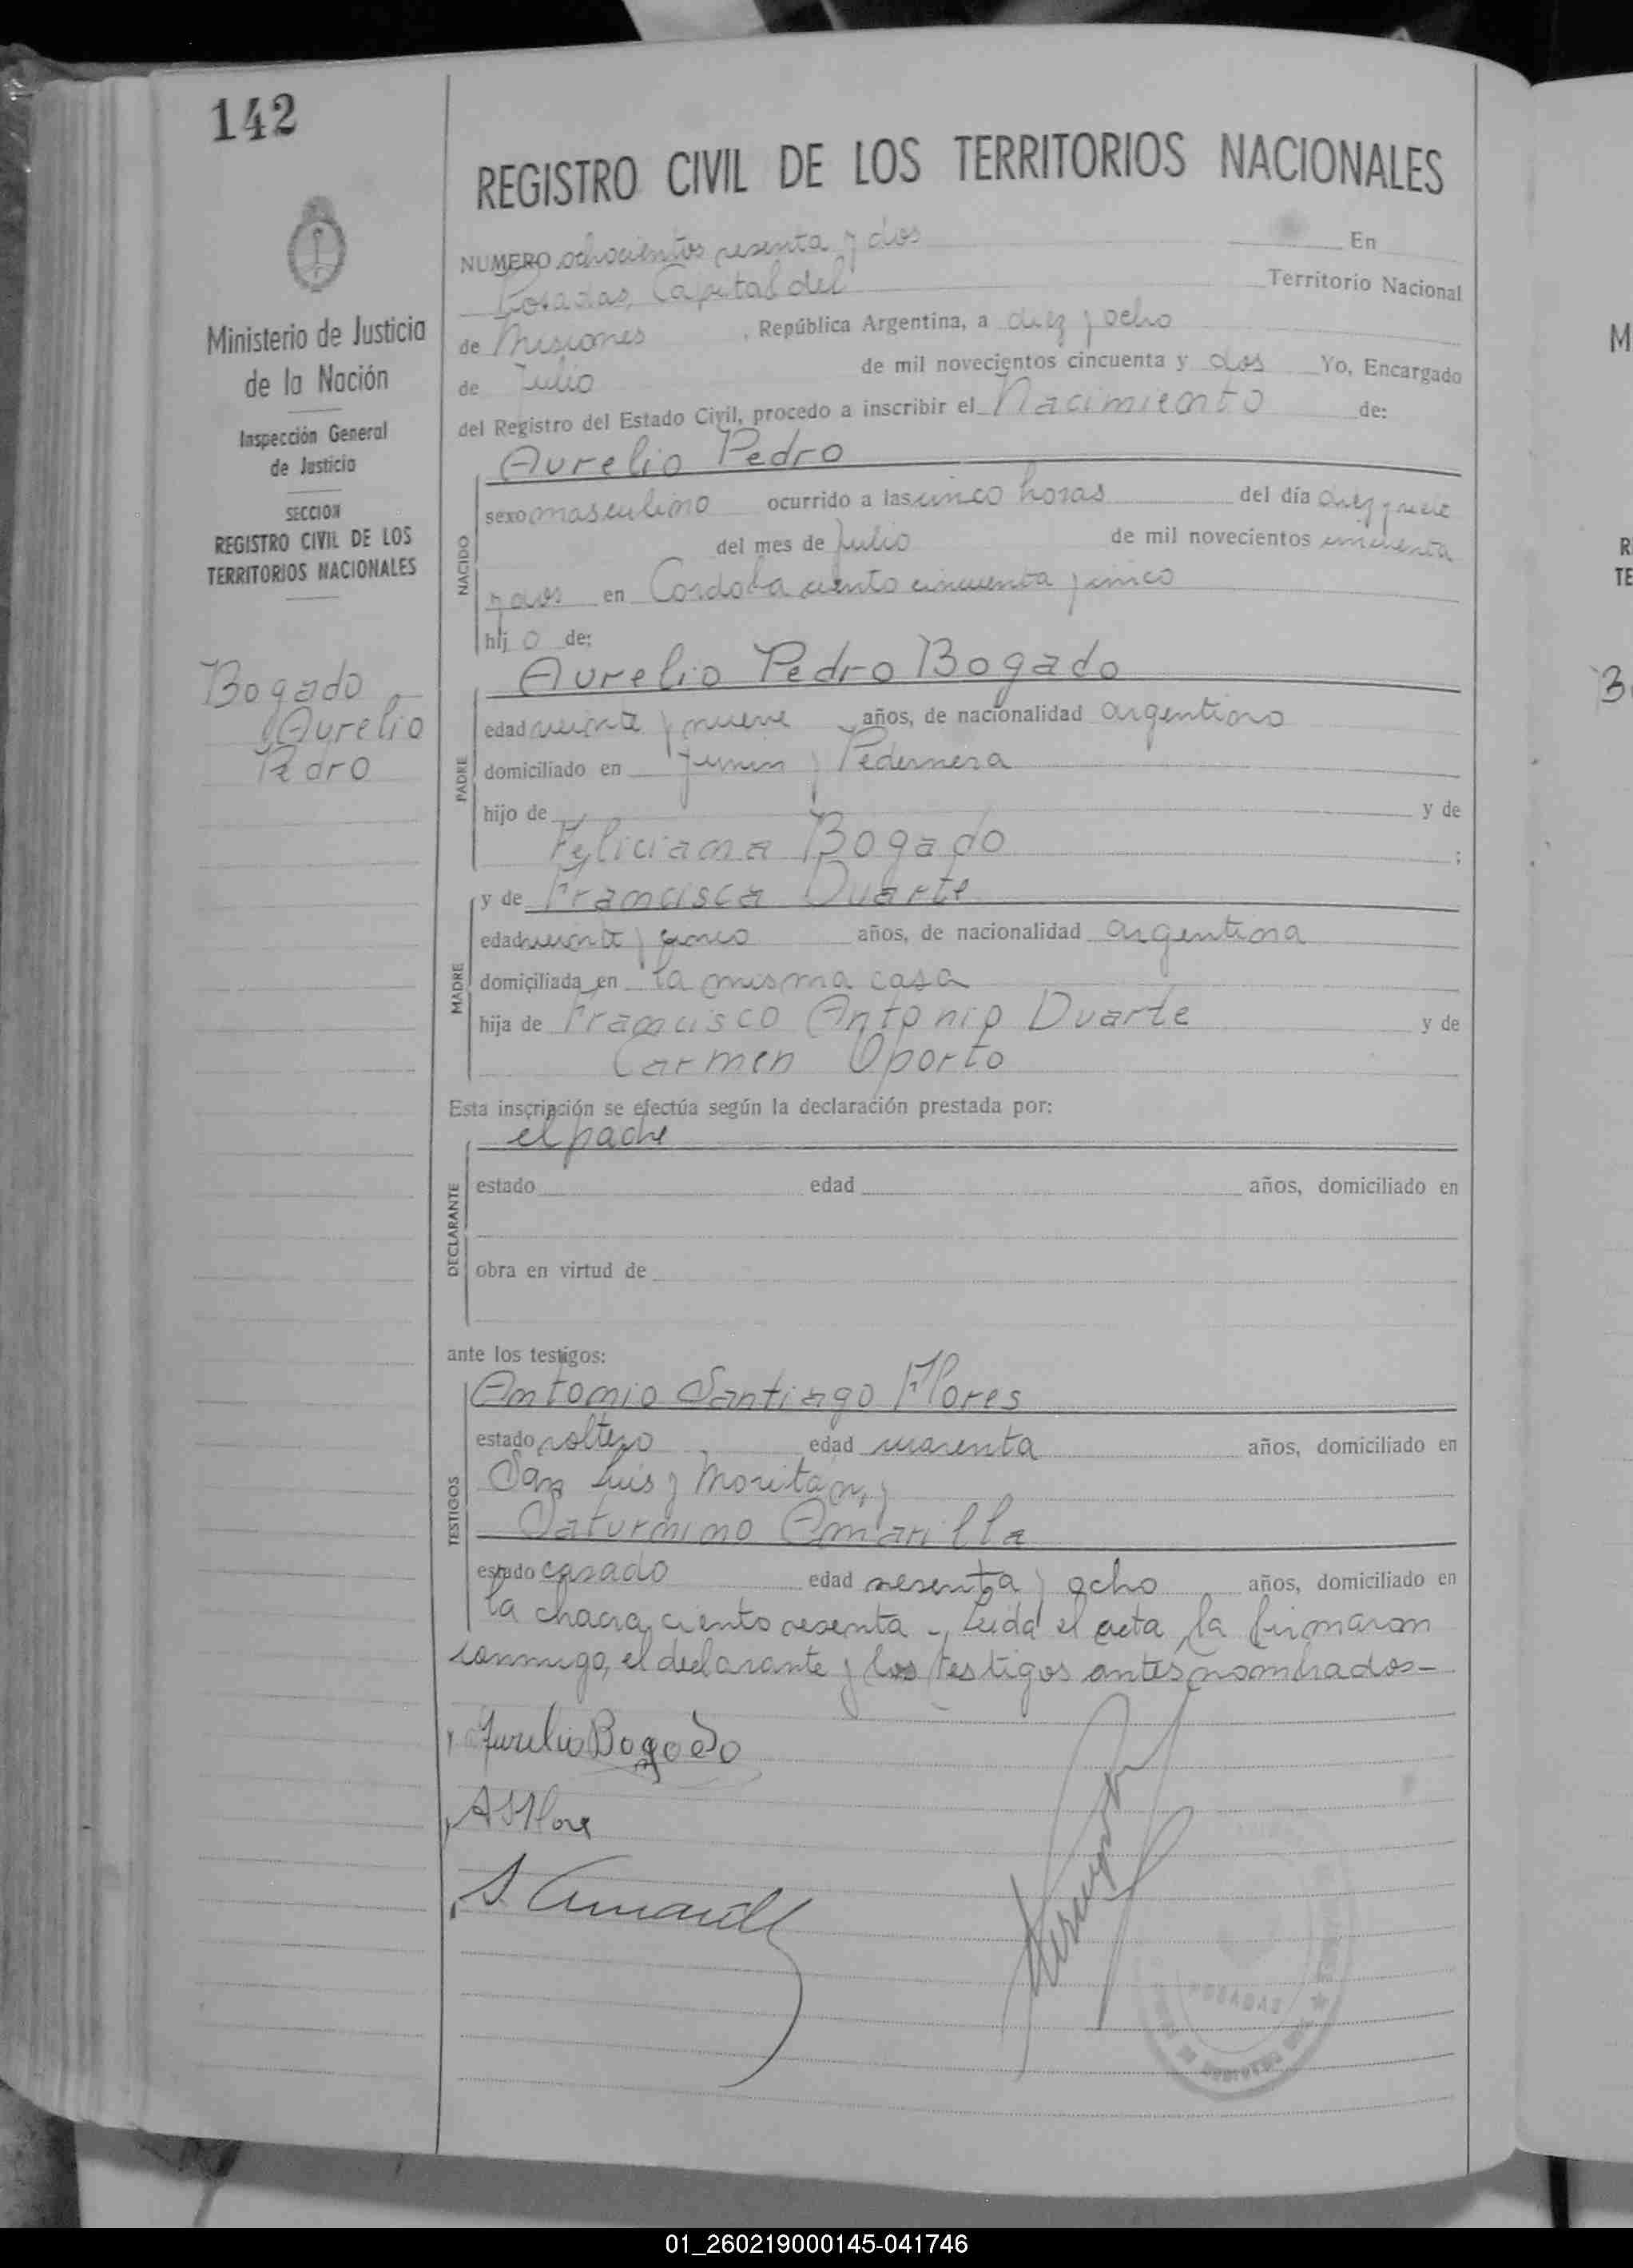 142
REGISTRO CIVIL DE LOS TERRITORIOS NACIONALES
Ministerio de Justicia
de la Nación
Inspección General
de Justicia
SECCION
REGISTRO CIVIL DE LOS
TERRITORIOS NACIONALES
Bogado
Aurelio
Pedro
NUMERO ochocientos sesenta y dos En
Posadas, Capital del Territorio Nacional
de Misiones , República Argentina, a diez y ocho
de Julio de mil novecientos cincuenta y dos Yo, Encargado
del Registro del Estado Civil, procedo a inscribir el Nacimiento de:
Aurelio Pedro
NACIDO
sexo masculino ocurrido a las cinco horas del día diez y siete
del mes de Julio de mil novecientos cincuenta
y dos en Cordoba ciento cincuenta y cinco
hij o de:
Aurelio Pedro Bogado
PADRE
edad veinte y nueve años, de nacionalidad argentino
domiciliado en Junin y Pedernera
hijo de y de
Feliciana Bogado ;
y de Francisca Duarte
MADRE
edad veinte y cinco años, de nacionalidad argentina
domiciliada en la misma casa
hija de Francisco Antonio Duarte y de
Carmen Oporto
Esta inscripción se efectúa según la declaración prestada por:
el padre
DECLARANTE
estado edad años, domiciliado en
obra en virtud de
ante los testigos:
Antonio Santiago Flores
TESTIGOS
estado soltero edad cuarenta años, domiciliado en
San Luis y Moritan, y
Saturnino Amarilla
estado casado edad sesenta y ocho años, domiciliado en
la chacra ciento sesenta -, Leida el acta, la firmaron
conmigo, el declarante y los testigos antes nombrados-
Aurelio Bogado
A S Flores
S. Amarilla
POSADAS
01_260219000145-041746